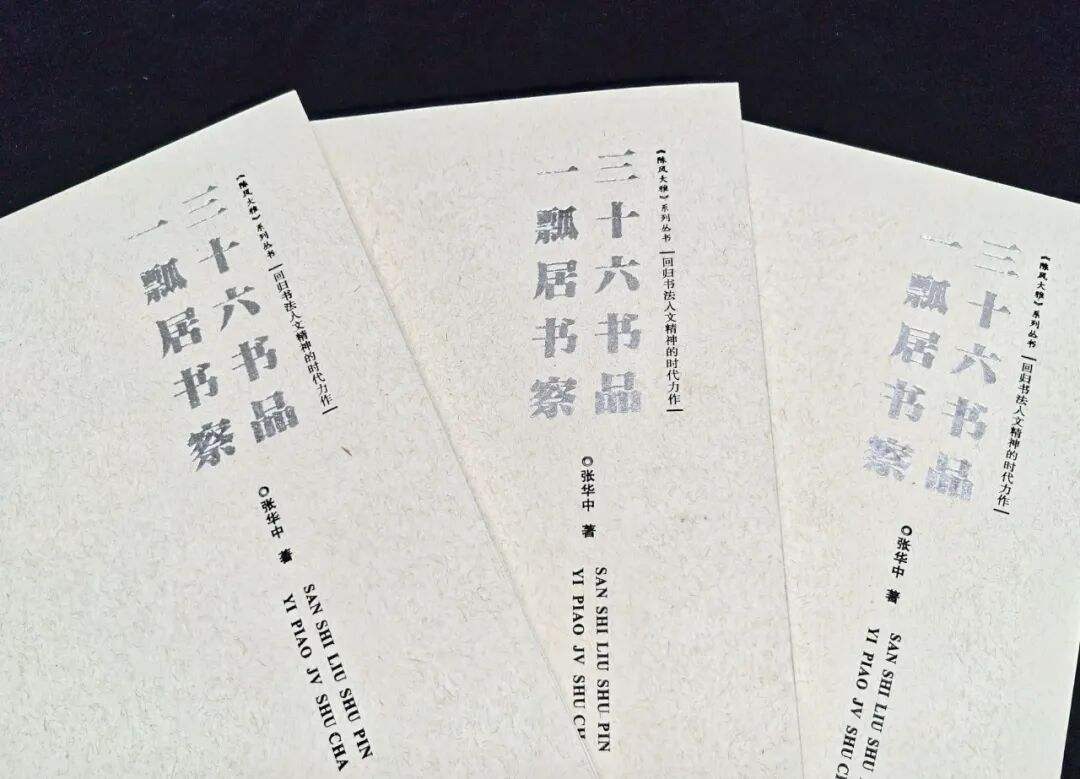 《陈风大雅》系列丛书
回归书法人文精神的时代力作
三十六书品
一瓢居书察
◎张华中 著
SAN SHI LIU SHU PIN
YI PIAO JV SHU CHA
《陈风大雅》系列丛书
回归书法人文精神的时代力作
三十六书品
一瓢居书察
◎张华中 著
SAN SHI LIU SHU PIN
YI PIAO JV SHU CH
《陈风大雅》系列丛书
回归书法人文精神的时代力作
三十六书品
一瓢居书察
◎张华中 著
SAN SHI LIU SHU
YI PIAO JV SHU CHA